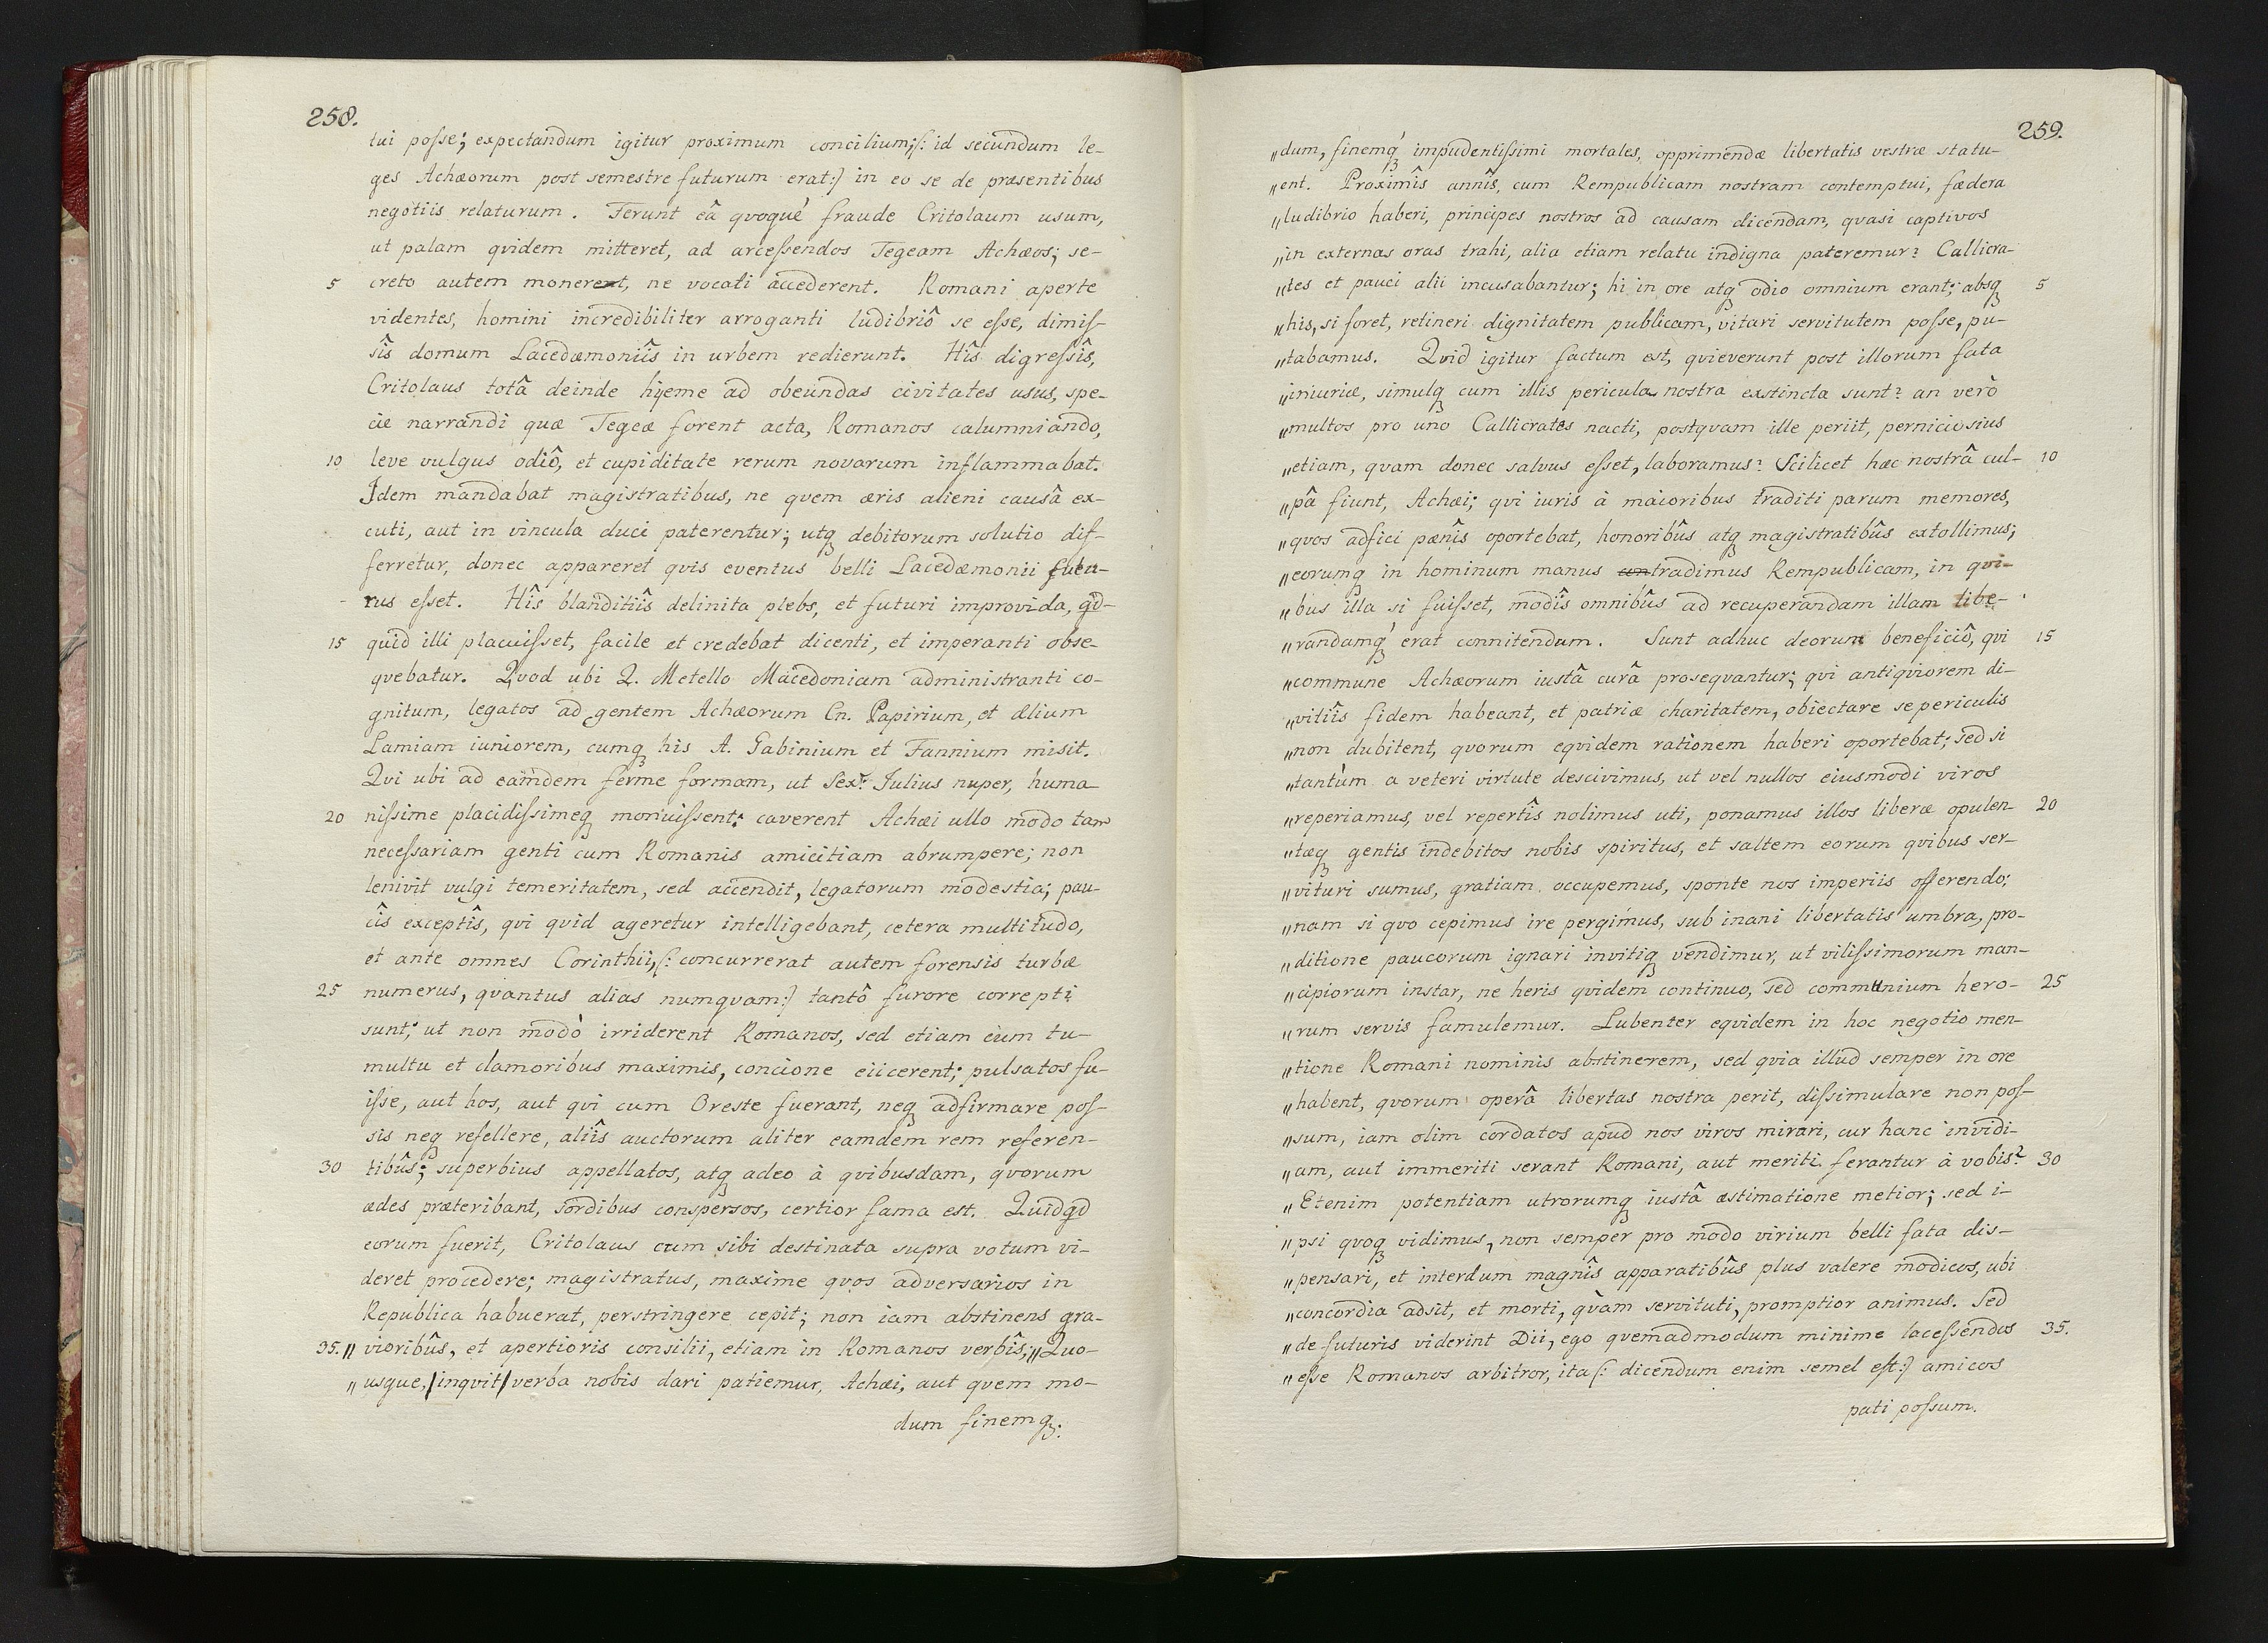 258.
tui posse; expectandum igitur proximum concilium;/: id secundum le-
ges Achæorum post semestre futurum erat:/ in eo se de præsentibus
negotiis relaturum. Ferunt eâ qvoque fraude Critolaum usum,
ut palam qvidem mitteret, ad arcessendos Tegeam Achæos; se-
5 creto autem monerent, ne vocati accederent. Romani aperte
videntes, homini incredibiliter arroganti ludibriô se esse, dimis-
sîs domum Lacedæmoniîs in urbem redierunt. Hîs digressîs,
Critolaus totâ deinde hyeme ad obeundas civitates usus, spe-
cie narrandi quæ Tegeæ forent acta, Romanos calumniando,
10 leve vulgus odiô, et cupiditate rerum novarum inflammabat.
Idem mandabat magistratibus, ne qvem æris alieni causâ ex-
cuti, aut in vincula duci paterentur; utq debitorum solutio dif-
ferretur, donec appareret qvis eventus belli Lacedæmonii futu-
rus esset. Hîs blanditiîs delinita plebs, et futuri improvida, qd-
15 quid illi placuisset, facile et credebat dicenti, et imperanti obse-
qvebatur. Qvod ubi Q. Metello Macedoniam administranti co-
gnitum, legatos ad gentem Achæorum Cn. Papirium, et Ælium
Lamiam iuniorem, cumq his A. Gabinium et Fannium misit.
Qvi ubi ad eamdem ferme formam, ut Sex: Iulius nuper, huma
20 nissime placidissimeq monuissent: caverent Achæi ullo modo tam
necessariam genti cum Romanis amicitiam abrumpere; non
lenivit vulgi temeritatem, sed accendit, legatorum modestia; pau-
cîs exceptîs, qvi qvid ageretur intelligebant, cetera multitudo,
et ante omnes Corinthii,/: concurrerat autem forensis turbæ
25 numerus, qvantus alias numqvam:/ tantô furore correpti
sunt; ut non modò irriderent Romanos, sed etiam cum tu-
multu et clamoribus maximis, concione eiicerent; pulsatos fu-
isse, aut hos, aut qvi cum Oreste fuerant, neq adfirmare pos-
sis neq refellere, aliîs auctorum aliter eamdem rem referen-
30 tibûs; superbius appellatos, atq adeo à qvibusdam, qvorum
ædes præteribant, sordibus conspersos, certior fama est. Quidqd
eorum fuerit, Critolaus cum sibi destinata supra votum vi-
deret procedere; magistratus, maxime qvos adversarios in
Republica habuerat, perstringere cepit; non iam abstinens gra-
35. „ vioribûs, et apertioris consilii, etiam in Romanos verbîs; „Quo-
„ usque, /inqvit/ verba nobis dari patiemur, Achæi, aut qvem mo-
dum finemq:
259.
„dum, finemq impudentissimi mortales, opprimendæ libertatis vestræ statu-
„ent. Proximîs annîs, cum Rempublicam nostram contemptui, fædera
„ludibrio haberi, principes nostros ad causam dicendam, qvasi captivos
„in externas oras trahi, alia etiam relatu indigna pateremur? Callicra-
„tes et pauci alii incusabantur; hi in ore atq odio omnium erant; absq 5
„his, si foret, retineri dignitatem publicam, vitari servitutem posse, pu-
„tabamus. Qvid igitur factum est, qvieverunt post illorum fata
„iniuriæ, simulq cum illis pericula nostra exstincta sunt? an verò
„multos pro uno Callicrates nacti, postqvam ille periit, perniciosius
„etiam, qvam donec salvus esset, laboramus? Scilicet hæc nostrâ cul- 10
„pâ fiunt, Achæi; qvi iuris à maioribus traditi parum memores,
„qvos adfici pœnîs oportebat, honoribûs atq magistratibûs extollimus;
„eorumq in hominum manus contradimus Rempublicam, in qvi-
„bus illa si fuisset, modîs omnibûs ad recuperandam illam libe-
„randamq erat connitendum. Sunt adhuc deorum beneficiô, qvi 15
„commune Achæorum iustâ curâ proseqvantur; qvi antiqviorem di-
„vitiîs fidem habeant, et patriæ charitatem, obiectare se periculis
„non dubitent, qvorum eqvidem rationem haberi oportebat; sed si
„tantùm a veteri virtute descivimus, ut vel nullos eiusmodi viros
„reperiamus, vel repertîs nolimus uti, ponamus illos liberæ opulen- 20
„tæq gentis indebitos nobis spiritus, et saltem eorum qvibus ser-
„vituri sumus, gratiam occupemus, sponte nos imperiis offerendo;
„nam si qvo cepimus ire pergimus, sub inani libertatis umbra, pro-
„ditione paucorum ignari invitiq vendimur, ut vilissimorum man-
„cipiorum instar, ne heris qvidem continuo, sed communium hero- 25
„rum servis famulemur. Lubenter eqvidem in hoc negotio men-
„tione Romani nominis abstinerem, sed qvia illud semper in ore
„habent, qvorum operâ libertas nostra perit, dissimulare non pos-
„sum, iam olim cordatos apud nos viros mirari, cur hanc invidi-
„am, aut immeriti ferant Romani, aut meriti ferantur à vobis? 30
„Etenim potentiam utrorumq iustâ æstimatione metior; sed i-
„psi qvoq vidimus, non semper pro modo virium belli fata dis-
„pensari, et interdum magnîs apparatibûs plus valere modicos, ubi
„concordia adsit, et morti, qvàm servituti, promptior animus. Sed
„de futuris viderint Dii, ego qvemadmodum minime lacessendos 35.
„esse Romanos arbitror, ita /: dicendum enim semel est:/ amicos
pati possum.